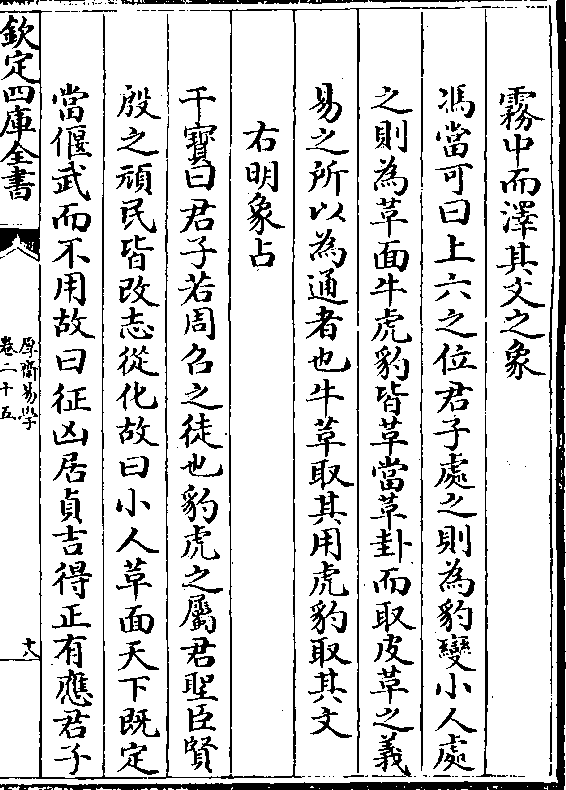 霧中而澤其文之象
馮當可曰上六之位君子處之則為豹變小人處
之則為革面牛虎豹皆革當革卦而取皮革之義
易之所以為通者也牛革取其用虎豹取其文
右明象占
干寶曰君子若周召之徒也豹虎之屬君聖臣賢
殷之頑民皆改志從化故曰小人革面天下既定
當偃武而不用故曰征凶居貞吉得正有應君子
欽定四庫全書
厚齋易學
卷二十五
十八